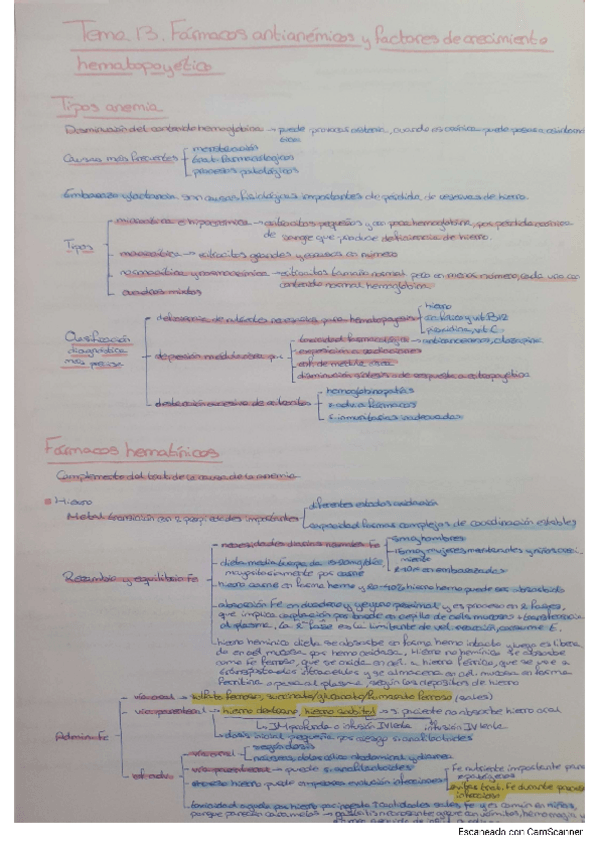 Tema 13. Fármacos antianémicos y factores de crecimiento
hematopoyético
Tipos anemia
Disminución del contenido hemoglobina → puede provocar astenia, cuando es crónica puede pasar a
Causas más frecuentes
menstruación
trat. farmacológicos
procesos patológicos
Embarazo y lactancia son causas fisiológicas importantes de pérdida de reservas de hierro.
Tipos
microcítica e hipocrómica → eritrocitos pequeños y con poca hemoglobina, por pérdida crónica
de sangre que produce deficiencia de hierro.
macrocítica → eritrocitos grandes y escasos en número
normocítica y normocrómica → eritrocitos tamaño normal pero en menos número, cada uno con
contenido normal hemoglobina
cuadros mixtos
Clasificación
diagnóstica
más precisa
deficiencia de nutrientes necesarios para hematopoyesis
hierro
ac. fólico y vit. B12
piridoxina, vit C.
depresión médula ósea p.ej.
toxicidad farmacológica → anticancerosos,
exposición a radiaciones
enf. de médula ósea
disminución síntesis o de respuesta a eritropoyetina
destrucción excesiva de eritrocitos
hemoglobinopatías
r. adv. a fármacos
r. inmunitarias inadecuadas
Fármacos hematínicos
Complemento del trat. de la causa de la anemia
Hierro
Metal transición con 2 propiedades importantes
diferentes estados oxidación
capacidad formar complejos de coordinación estables
Recambio y equilibrio Fe
necesidades diarias normales Fe
5 mg hombres
15 mg mujeres menstruantes y niños creci-
miento
en embarazadas
dieta media Europa
mayoritariamente por carne
hierro carne en forma hemo y 20-40% hierro hemo puede ser absorbido
absorción Fe en duodeno y yeyuno proximal y es proceso en 2 fases,
que implica captación por borde en cepillo de cells mucosas y transferencia
al plasma, la 2ª fase es la limitante de vel.
hierro hemínico dieta se absorbe en forma hemo intacto y luego es libera-
do en cel mucosa por hemo oxidasa. Hierro no hemínico se absorbe
como Fe ferroso, que se oxida en cel a hierro férrico, que se une a
transportador intracelular y se almacena en cel mucosa en forma
ferritina o pasa al plasma, según los depósitos de hierro
Admin. Fe
vía oral → sulfato ferroso, succinato/gluconato/fumarato ferroso (sales)
vía parenteral → hierro dextrano, hierro sorbitol → si paciente no absorbe hierro oral
IM profunda o infusión IV lenta
infusión IV lenta
dosis inicial pequeña por riesgo r. anafilactoides
ef. adv.
vía oral
según dosis
náuseas, dolor cólico abdominal y diarrea
vía parenteral → puede r. anafilactoides
exceso hierro puede empeorar evolución infecciones
Fe nutriente importante para
patógenos
evitar trat. Fe durante proceso
infeccioso
toxicidad aguda por hierro por ingesta ↑ cantidades sales Fe y es común en niños,
porque parecen caramelos → gastritis necrosante aguda con vómitos, hemorragia y
Escaneado con CamScanner